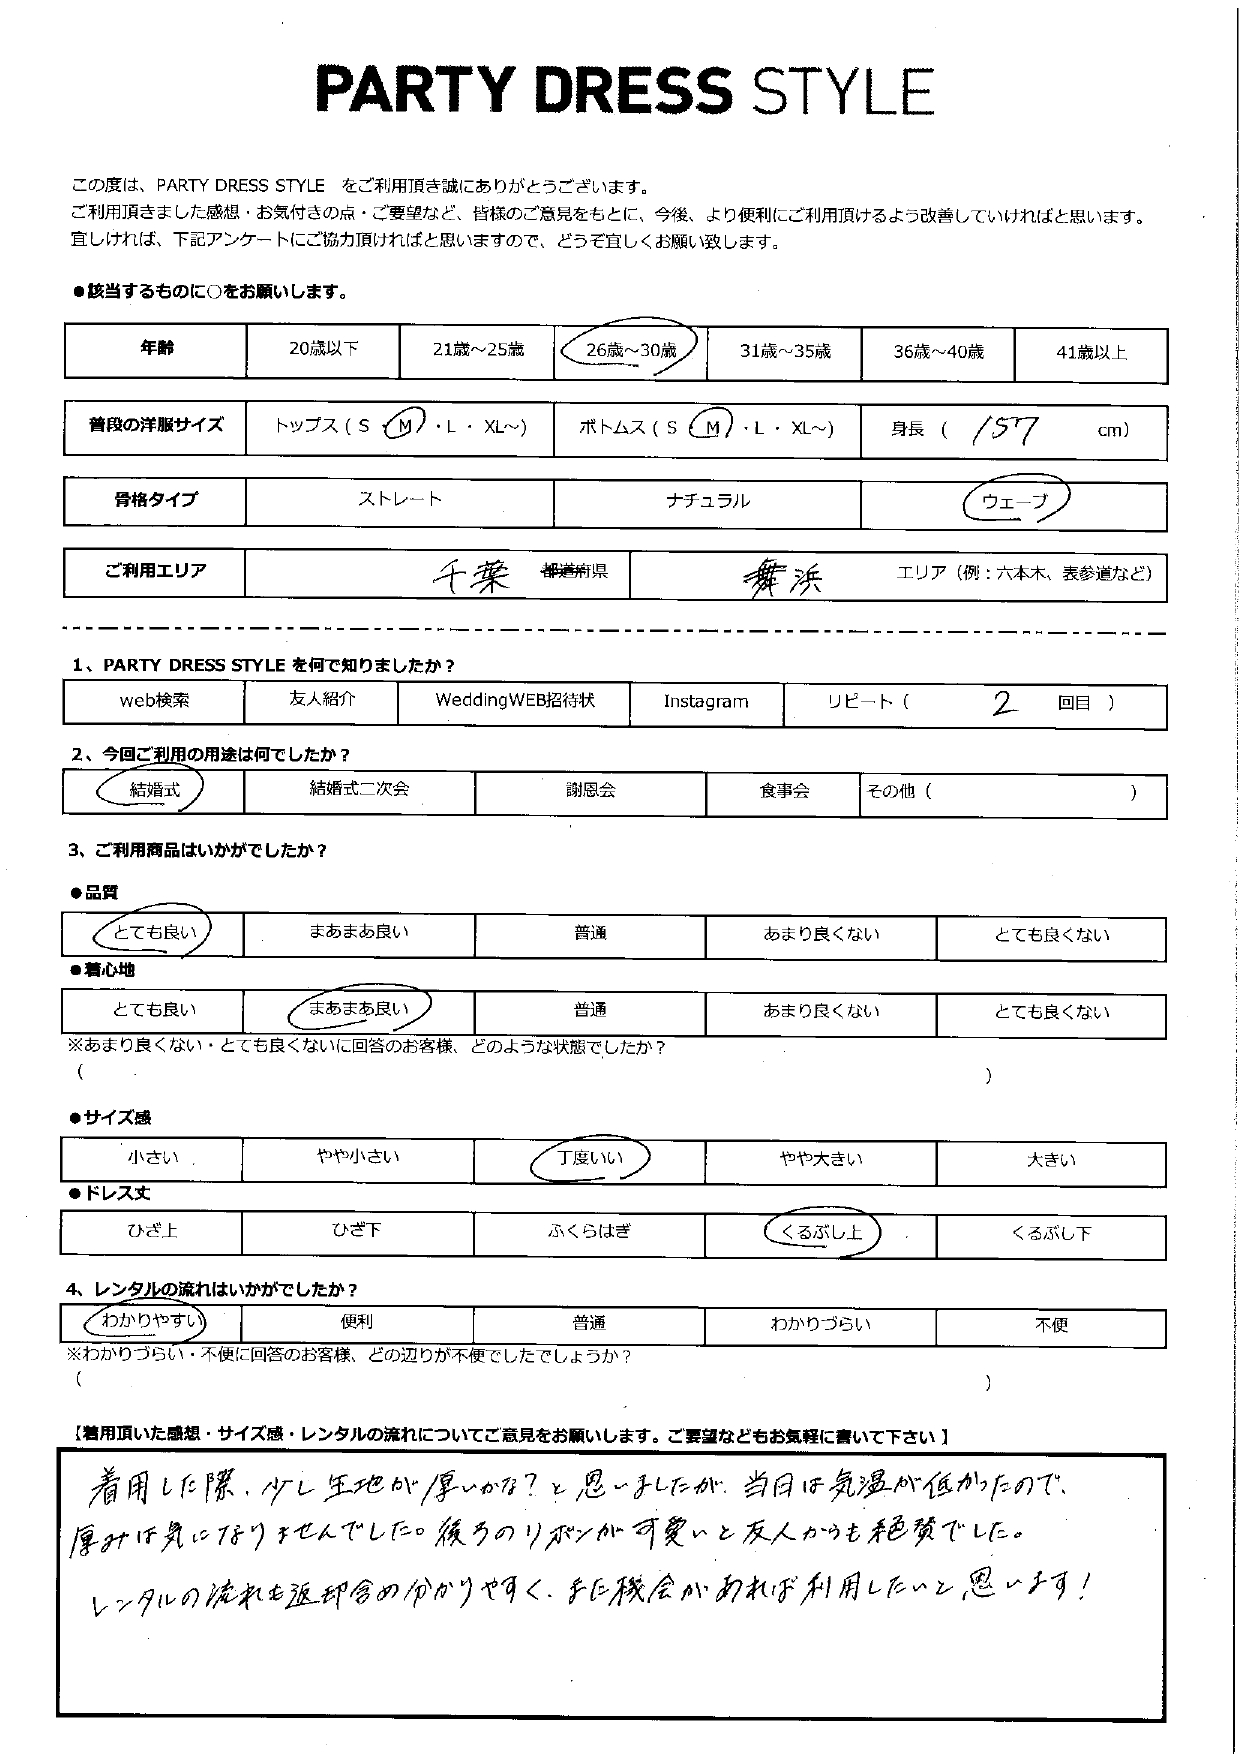 PARTY DRESS STYLE
この度は、PARTY DRESS STYLE をご利用頂き誠にありがとうございます。
ご利用頂きました感想・お気付きの点・ご要望など、皆様のご意見をもとに、今後、より便利にご利用頂けるよう改善していければと思います。
宜しければ、下記アンケートにご協力頂ければと思いますので、どうぞ宜しくお願い致します。
●該当するものに○をお願いします。
年齢 20歳以下 21歳～25歳 26歳～30歳 31歳～35歳 36歳～40歳 41歳以上
普段の洋服サイズ トップス ( S ・ M ・ L ・ XL～) ボトムス ( S ・ M ・ L ・ XL～) 身長 ( 157 cm)
骨格タイプ ストレート ナチュラル ウェーブ
ご利用エリア 千葉 都道府県 舞浜 エリア（例：六本木、表参道など）
1、PARTY DRESS STYLE を何で知りましたか？
web検索 友人紹介 WeddingWEB招待状 Instagram リピート ( 2 回目 )
2、今回ご利用の用途は何でしたか？
結婚式 結婚式二次会 謝恩会 食事会 その他 ( )
3、ご利用商品はいかがでしたか？
●品質
とても良い まあまあ良い 普通 あまり良くない とても良くない
●着心地
とても良い まあまあ良い 普通 あまり良くない とても良くない
※あまり良くない・とても良くないに回答のお客様、どのような状態でしたか？
( )
●サイズ感
小さい やや小さい 丁度いい やや大きい 大きい
●ドレス丈
ひざ上 ひざ下 ふくらはぎ くるぶし上 くるぶし下
4、レンタルの流れはいかがでしたか？
わかりやすい 便利 普通 わかりづらい 不便
※わかりづらい・不便に回答のお客様、どの辺りが不便でしたでしょうか？
( )
【着用頂いた感想・サイズ感・レンタルの流れについてご意見をお願いします。ご要望などもお気軽に書いて下さい】
着用した際、少し生地が厚いかな？と思いましたが、当日は気温が低かったので、
厚みは気になりませんでした。後ろのリボンが可愛いと友人からも絶賛でした。
レンタルの流れも返却含め分かりやすく、また機会があれば利用したいと思います！